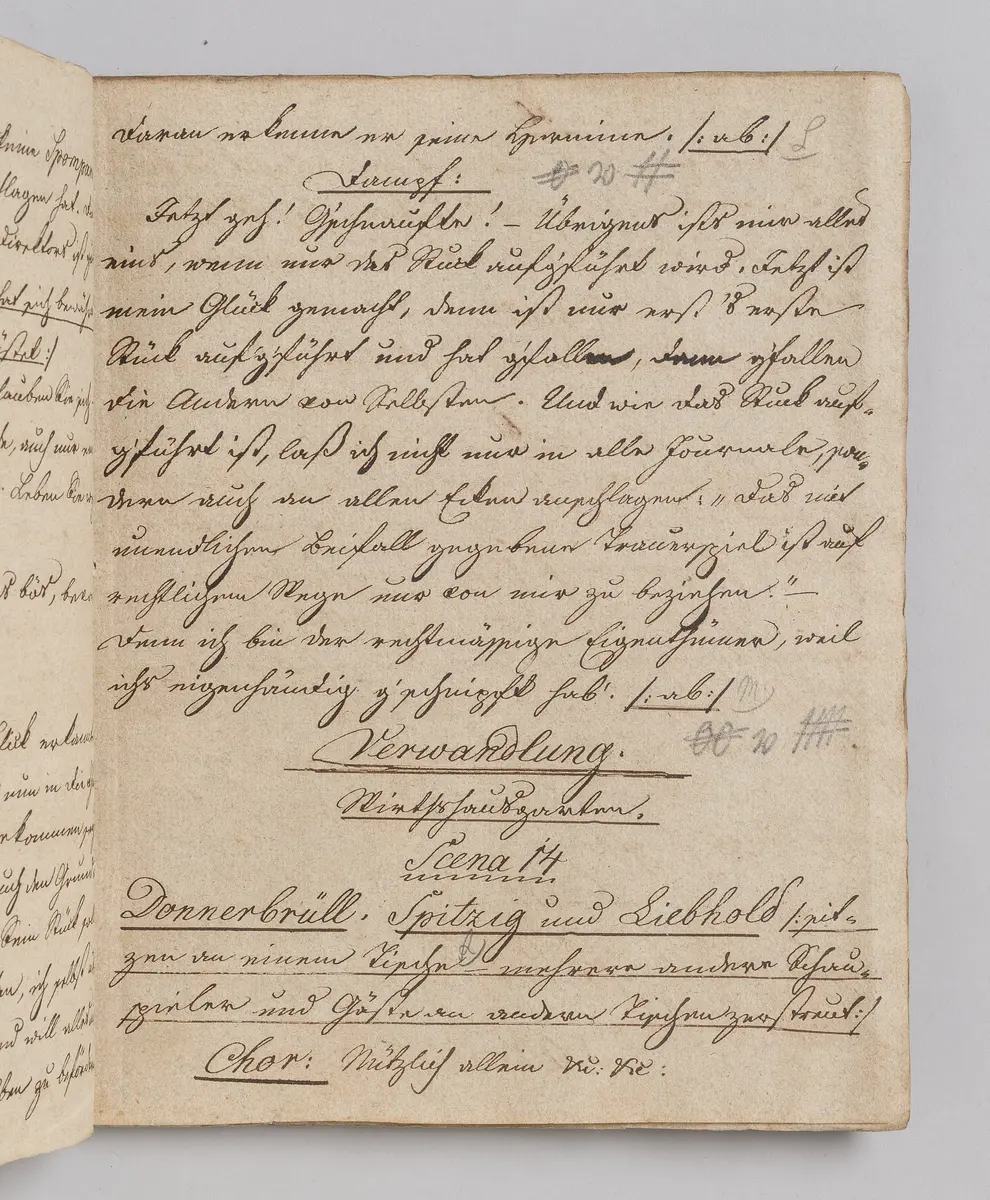 daran erkenne er seine Hermine. /: ab :/
Dampf:
Jetzt geh! G'schnaufte! – Übrigens ists mir alles
eins, wenn nur das Stuck aufg'führt wird. Jetzt ist
mein Glück gemacht, denn ist nur erst 's erste
Stück aufg'führt und hat g'fallen, dann g'fallen
die Andern von Selbsten. Und wie das Stuck auf=
g'führt ist, laß ich nicht nur in alle Journale, son=
dern auch an allen Ecken anschlagen: „Das mit
unendlichen Beifall gegebene Trauerspiel ist auf
rechtlichem Wege nur von mir zu beziehen." –
Denn ich bin der rechtmässige Eigenthümer, weil
ichs eigenhändig g'schnipft hab'. /: ab :/
Verwandlung.
Wirthshausgarten.
Scena 14
Donnerbrüll. Spitzig und Liebhold /: sit=
zen an einem Tische – mehrere andere Schau=
spieler und Gäste an andern Tischen zerstreut :/
Chor: Nützlich allein &c: &c: